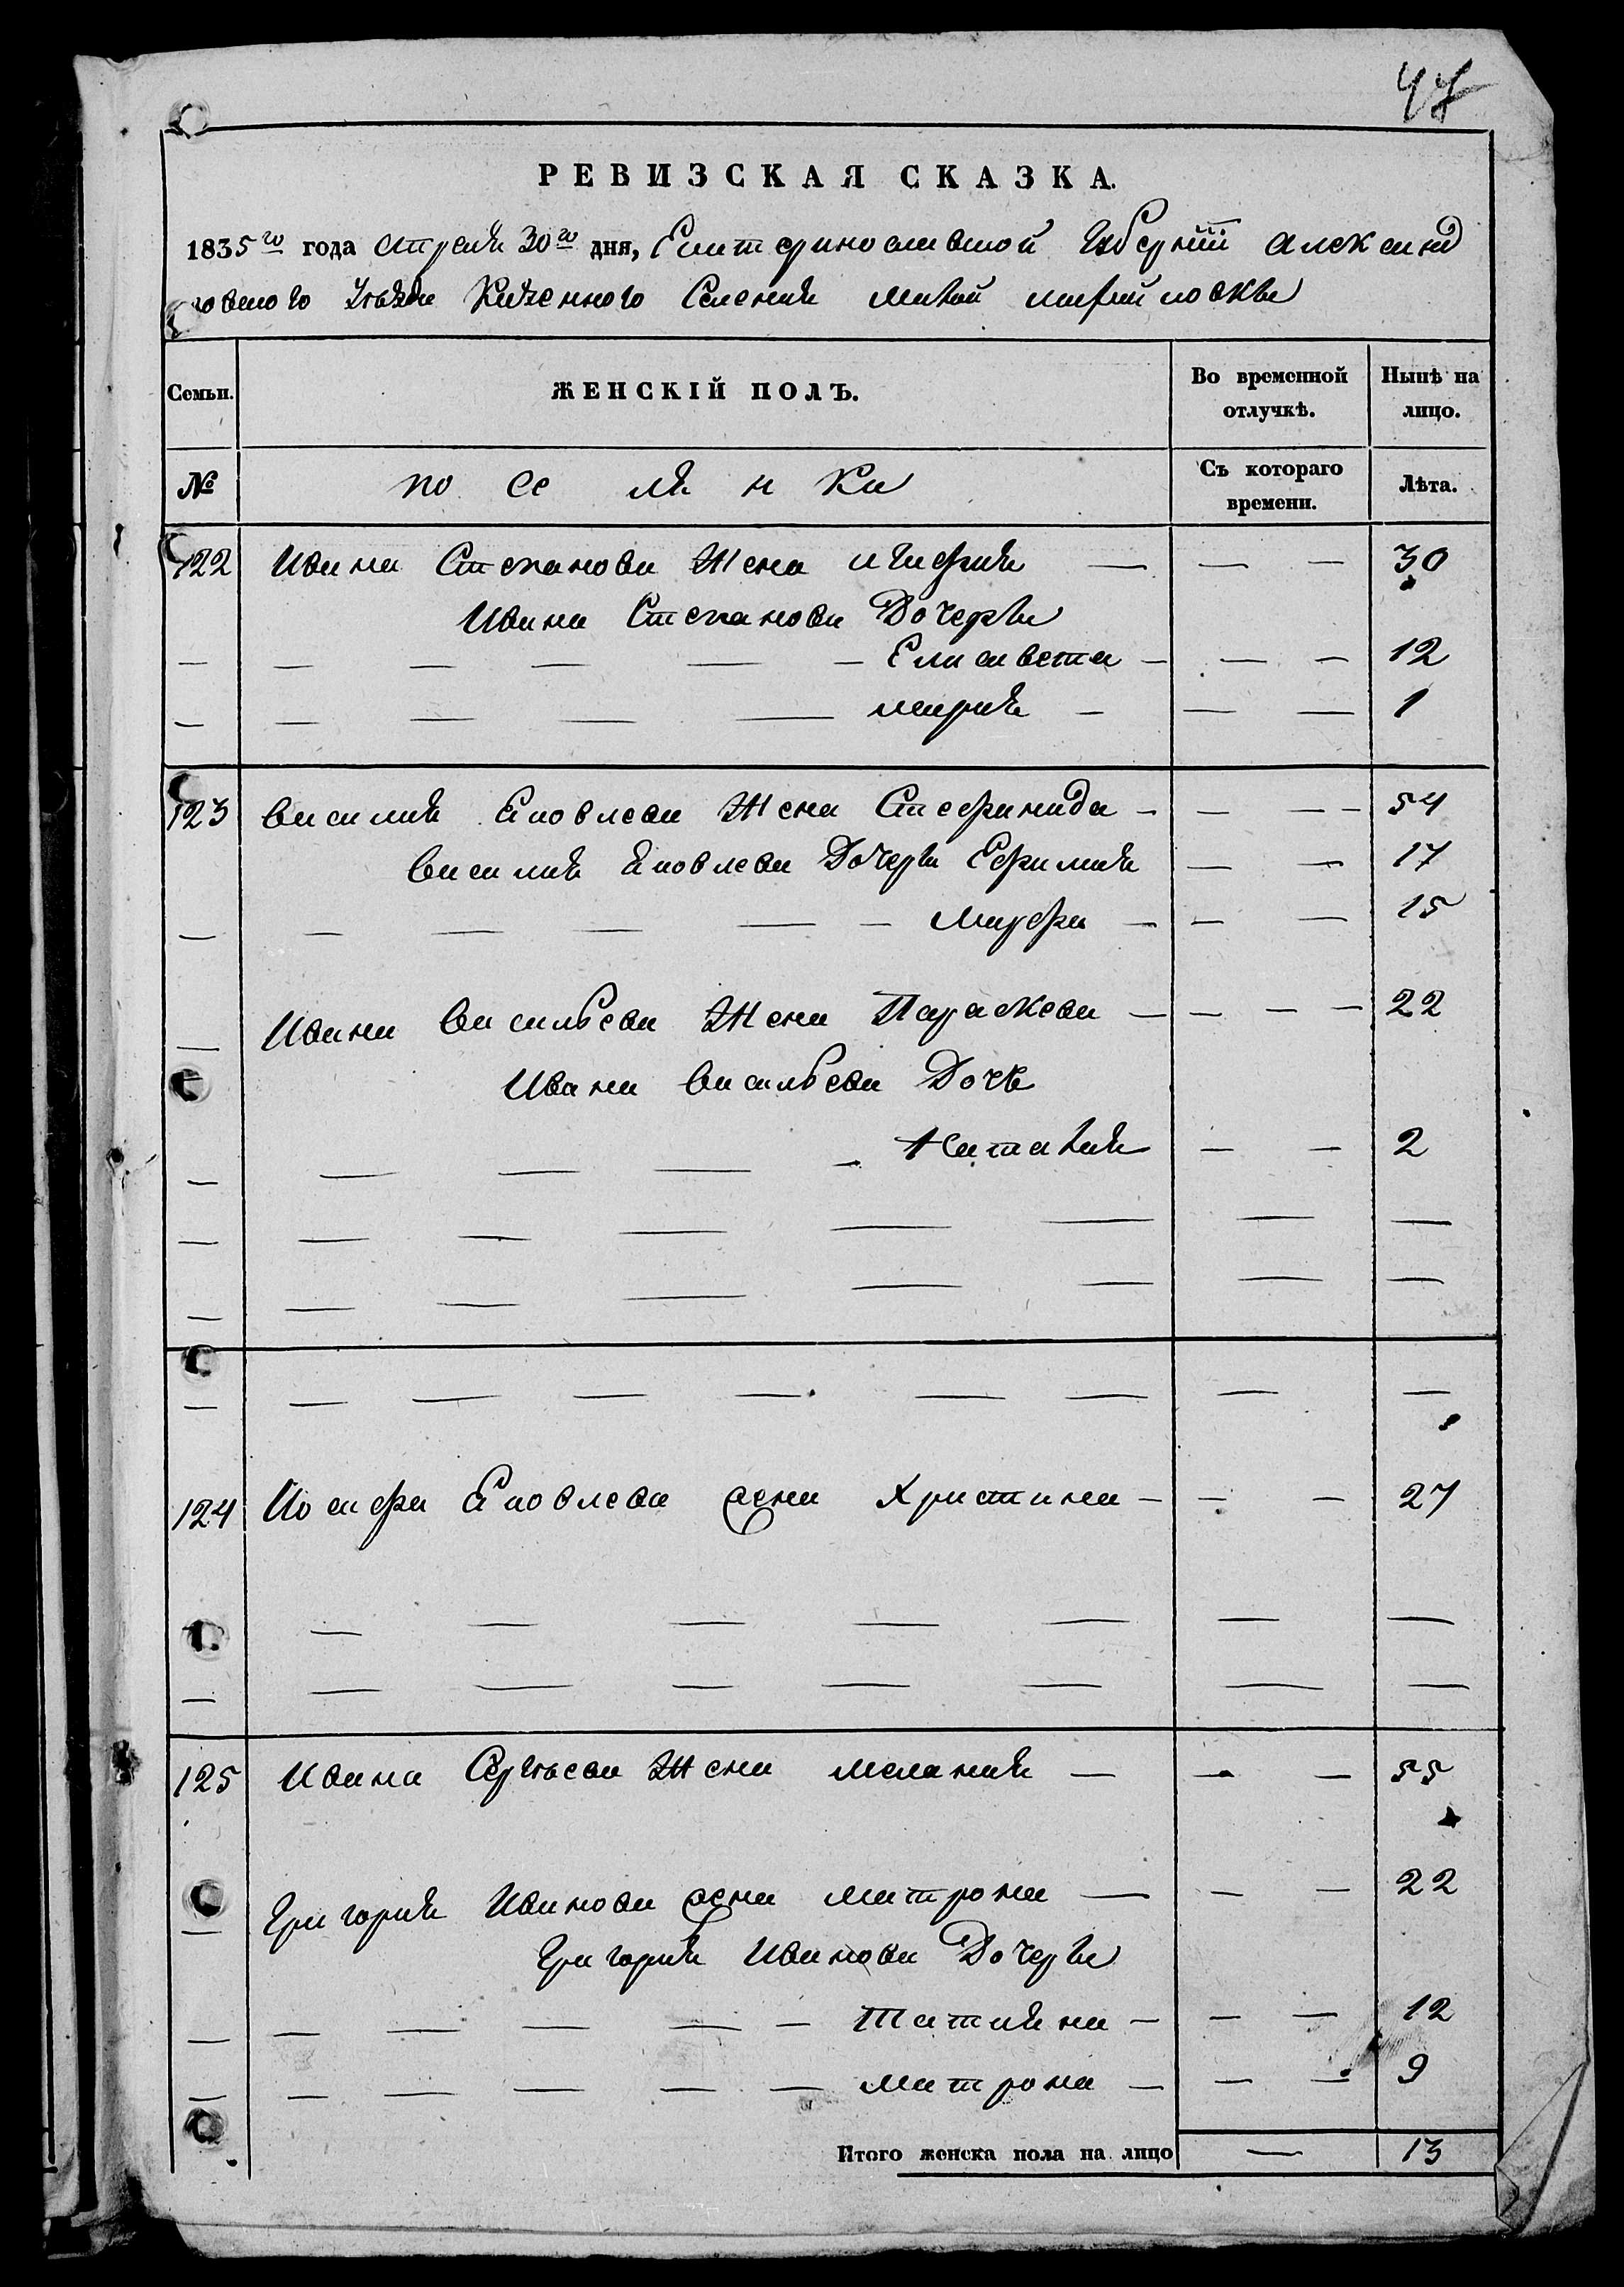 47
РЕВИЗСКАЯ СКАЗКА.
1835го года апреля 30го дня, Екатеринославской Губернiи александ
ровского Уѣзда Казенного Селения малой михайловки
Семьи. ЖЕНСКIЙ ПОЛЪ. Во временной отлучкѣ. Нынѣ на лицо.
№ по се ля н ки Съ котораго времени. Лѣта.
122 Ивана Степанова Жена — — — 30
Ивана Степанова Дочерьи
— — — — — — Елисавета — — — 12
— — — — — мария — — — 1
123 василия Яковлева Жена Стефанида — — — - 54
василия Яковлева Дочери Ефимия — — 17
— — — — — — Марфа — — — 15
— Ивана васильева Жена Параскева — — — — 22
Ивана васильева Дочь
— — — — — Наталия — — 2
— — — — — — — —
— — — — — — — —
— — — — — — — — —
124 Иосифа Яковлева жена Христина — — — 27
— — — — — — —
— — — — — — — —
125 Ивана Сергѣева Жена мелания — — — 55
— Григория Иванова жена матрона — — — 22
Григория Иванова Дочерьи
— — — — — — Татияна — — — 12
— — — — — — матрона — — — 9
Итого женска пола на лицо — 13